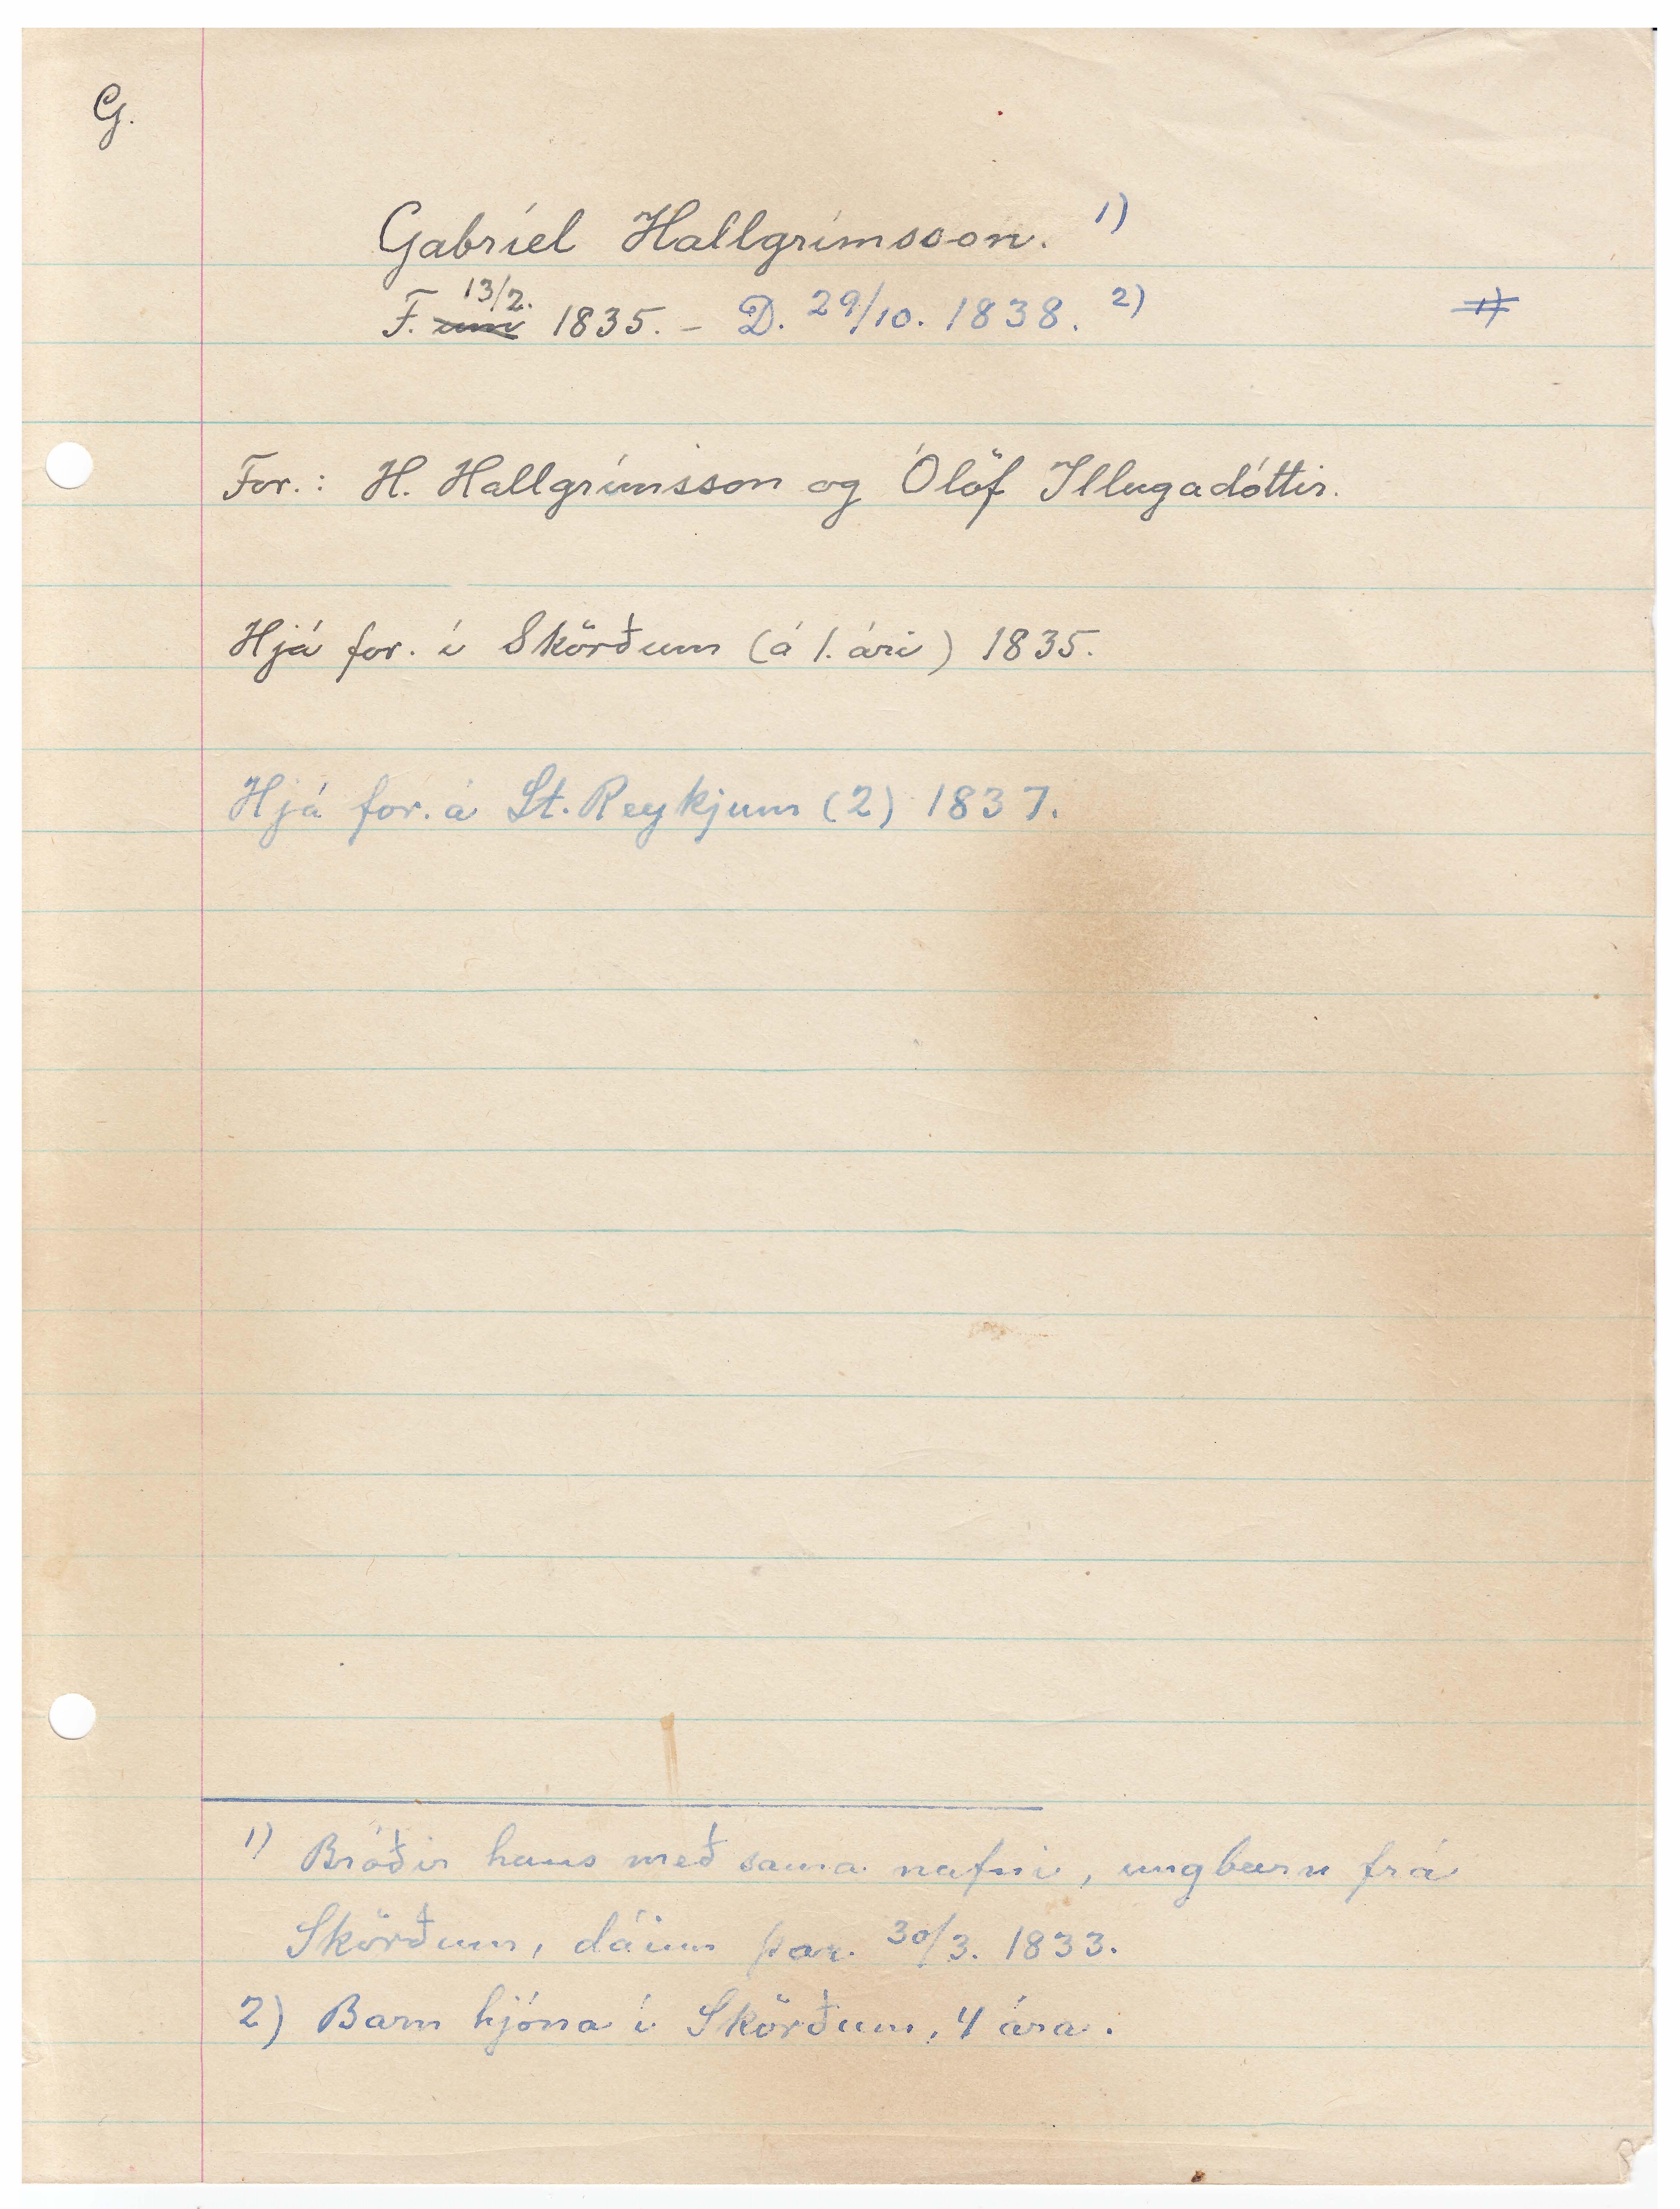 G.
Gabríel Hallgrímsson. 1)
F. 13/2. ~~um~~ 1835. - D. 29/10. 1838. 2) ~~1)~~
For.: H. Hallgrímsson og Ólöf Illugadóttir.
Hjá for. í Skörðum (á 1. ári) 1835.
Hjá for. á St. Reykjum (2) 1837.
1) Bróðir hans með sama nafni, ungbarn frá
Skörðum, dáinn þar. 30/3. 1833.
2) Barn hjóna í Skörðum, 4 ára.